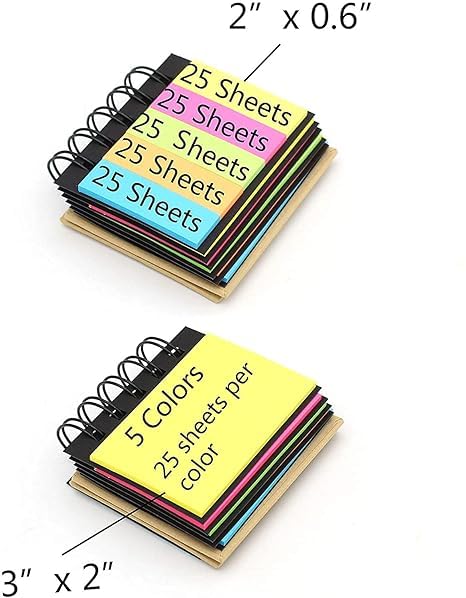 2" x 0.6"
25 Sheets
25 Sheets
25 Sheets
25 Sheets
25 Sheets
5 Colors
25 sheets per
color
3" x 2"